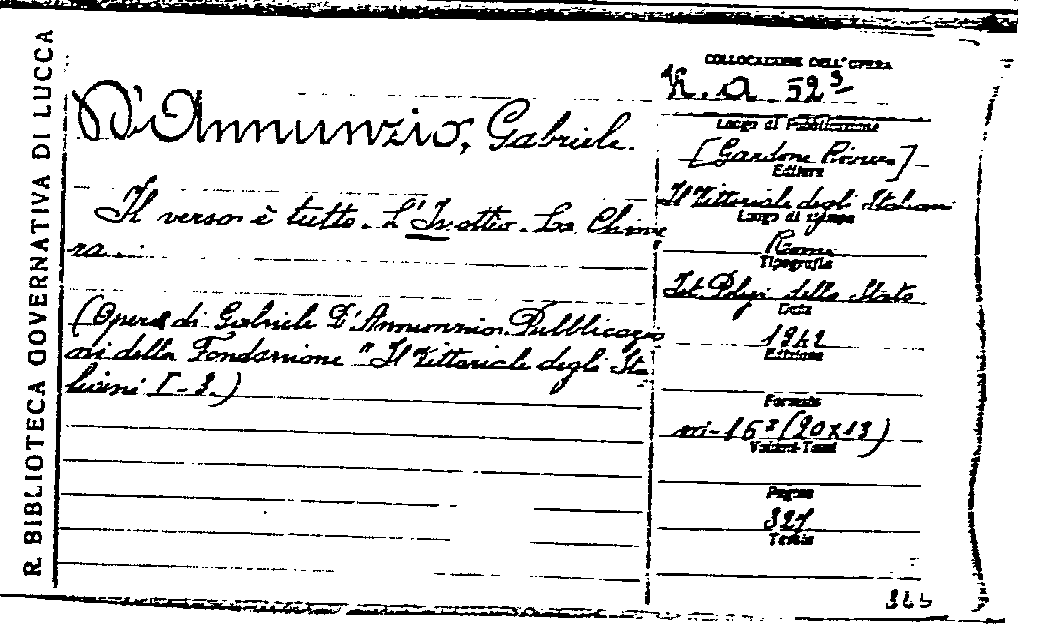 R. BIBLIOTECA GOVERNATIVA DI LUCCA
D'Annunzio, Gabriele.
Il verso è tutto. L'Isotteo. La Chime
ra...
(Opera di Gabriele D'Annunzio. Pubblicazio
ni della Fondazione "Il Vittoriale degli Ita
liani I-3.)
COLLOCAZIONE DELL'OPERA
K. a. 52
Luogo di Pubblicazione
[Gardone Riviera]
Editore
Il Vittoriale degli Italiani
Luogo di stampa
Roma
Tipografia
Ist. Poligr. dello Stato
Data
1942
Edizione
Formato
in-16° (20x13)
Volumi-Tomi
Pagine
327
Tavole